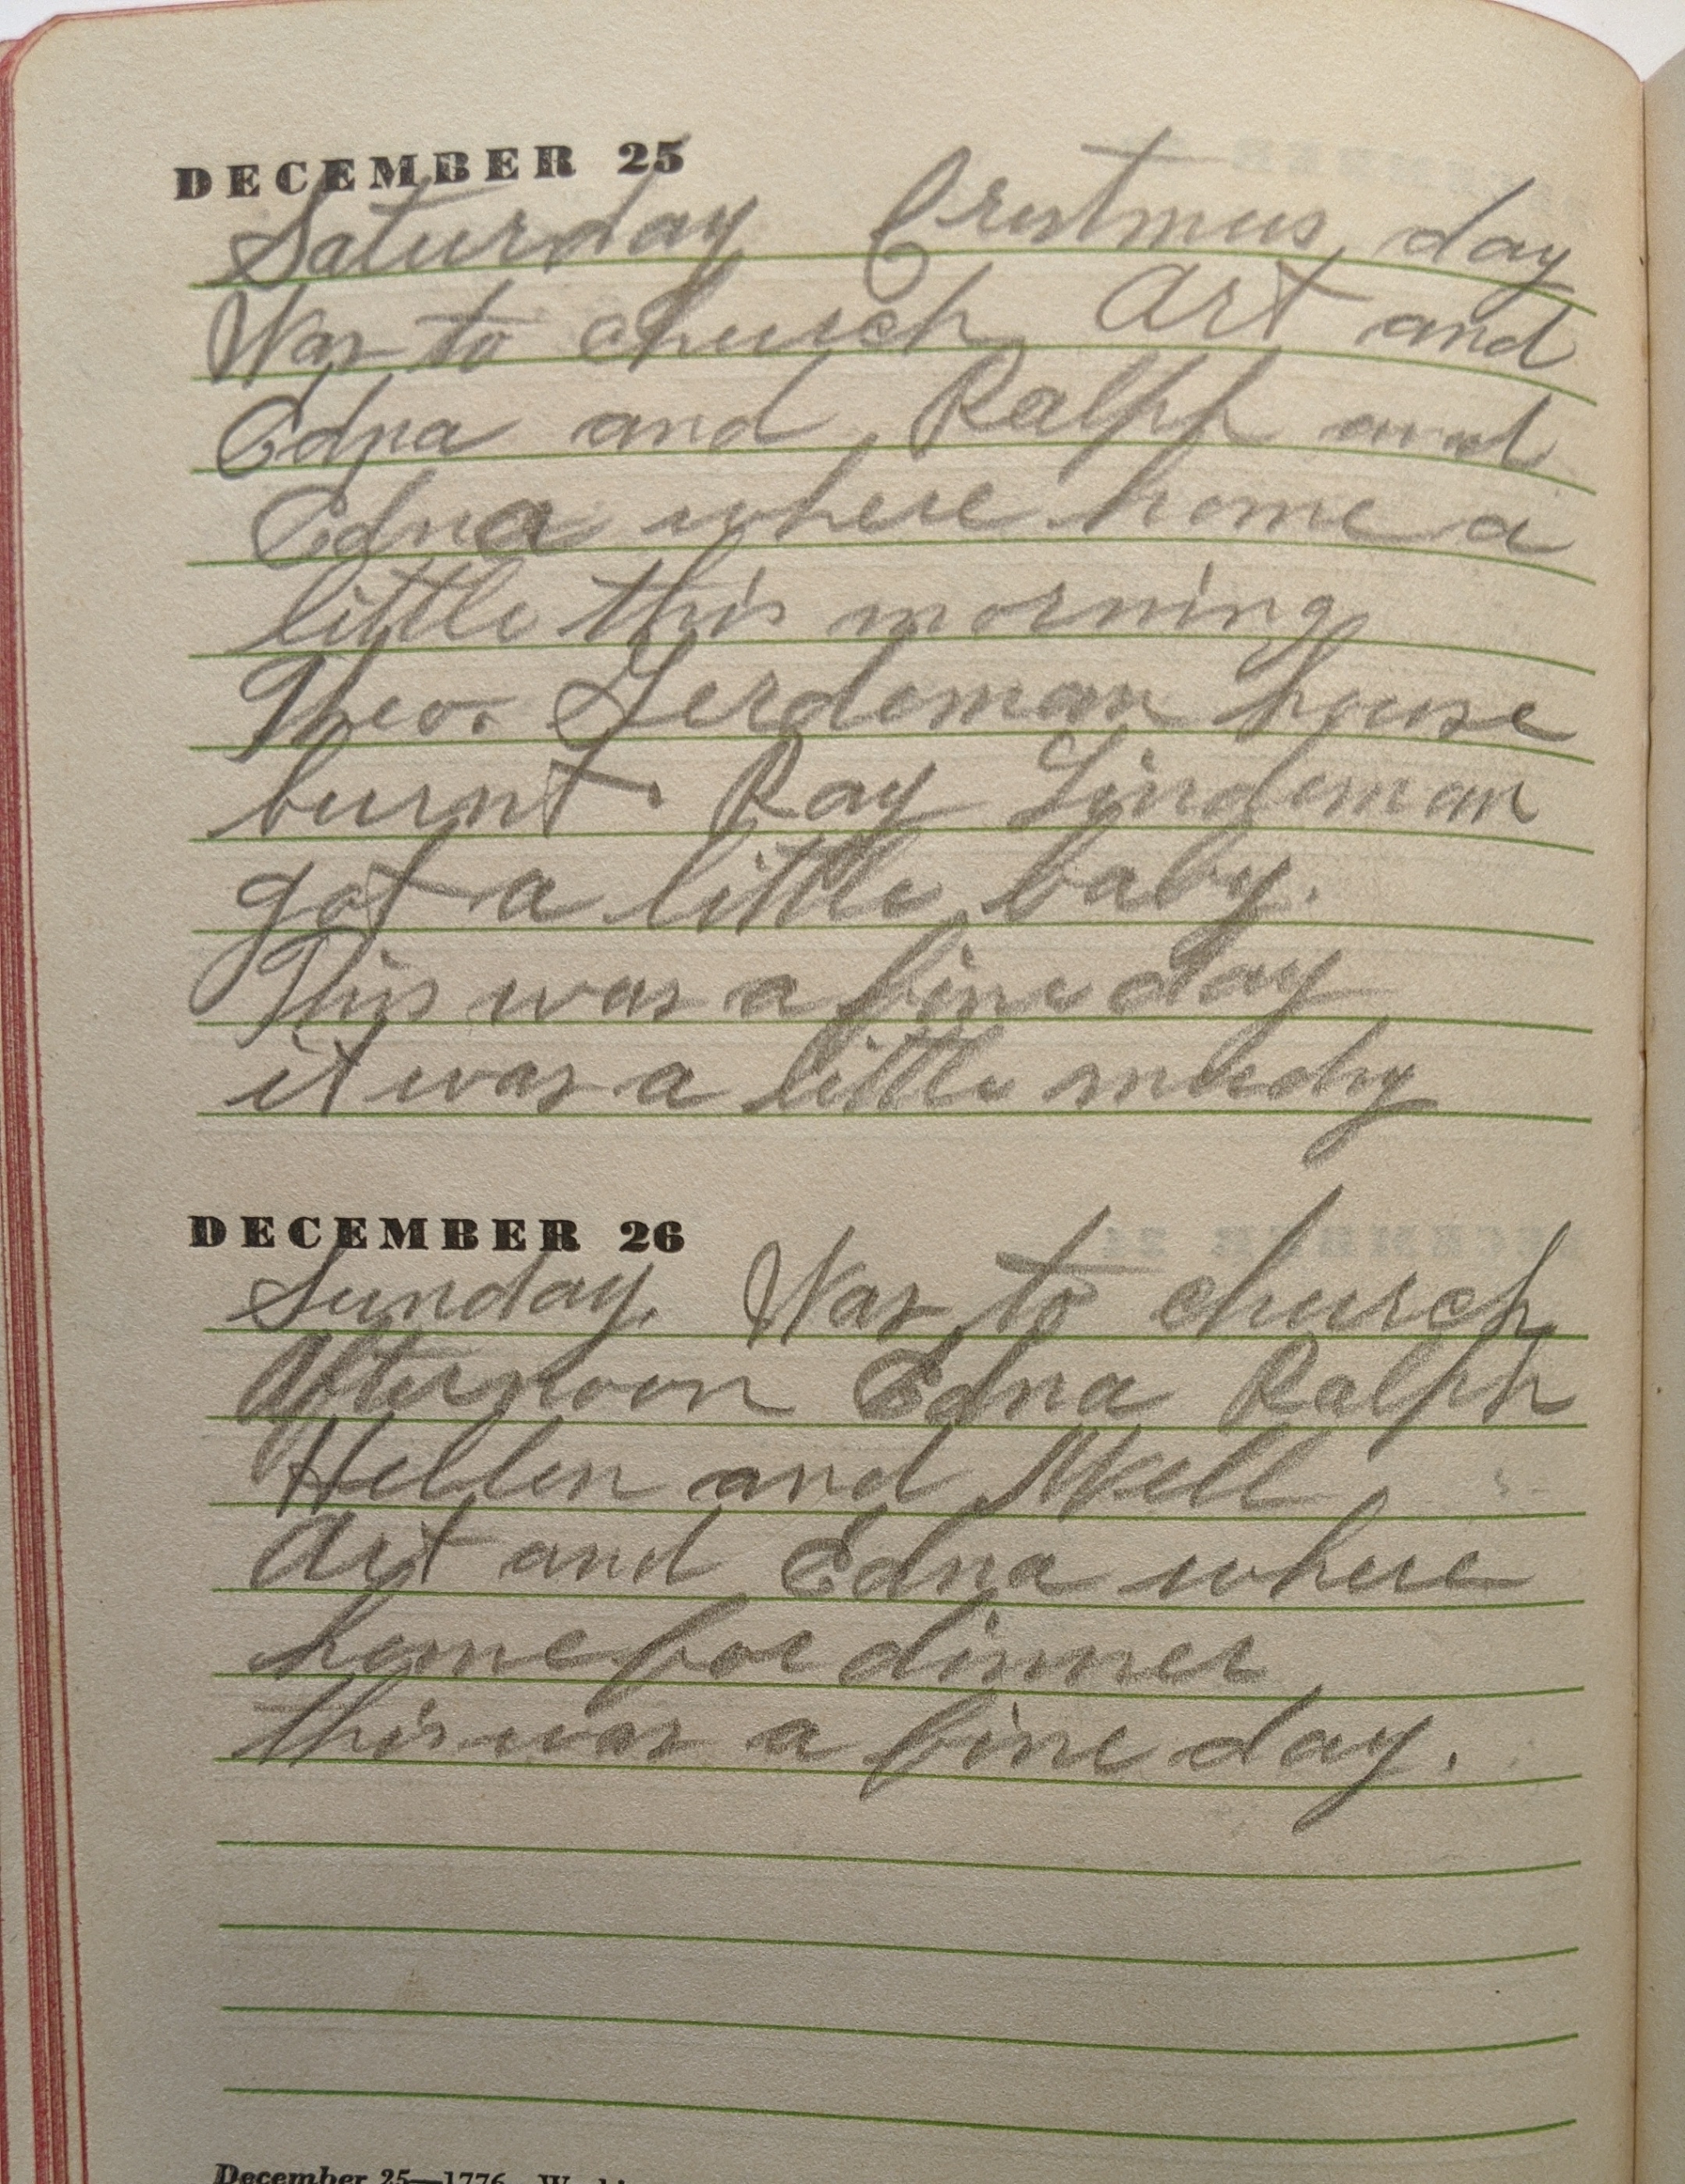 DECEMBER 25
Saturday Cristmus day
Was to church Art and
Edna and Ralph and
Edna where home a
little this morning
Theo. Gerdeman house
burnt. Ray Lindeman
got a little baby.
This was a fine day
it was a little mudy
DECEMBER 26
Sunday. Was to church
Afternoon Edna Ralph
Hellen and
Art and Edna where
home for dinner
this was a fine day.
December 25—1776